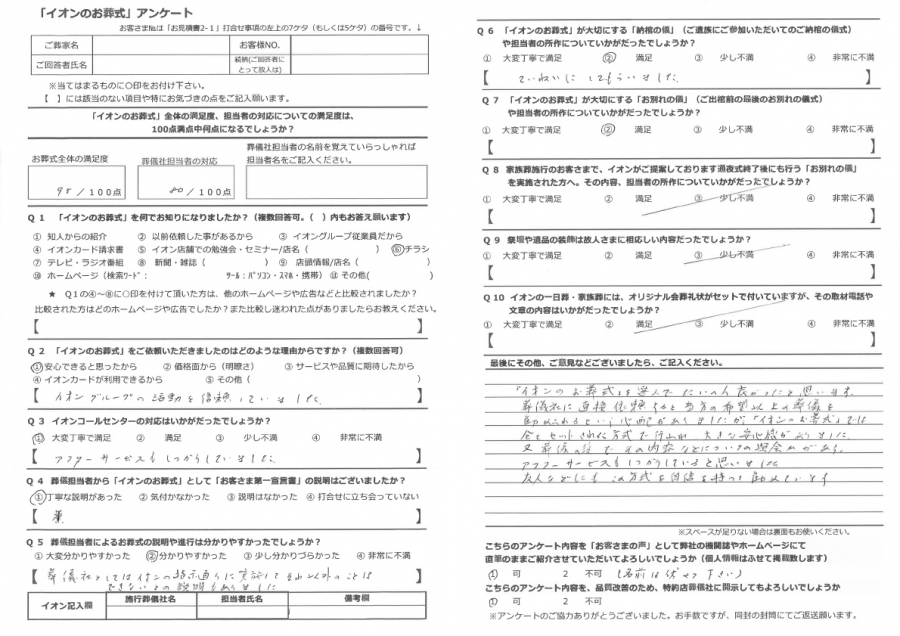 「イオンのお葬式」アンケート
お客さま№は「お見積書2-1」打合せ事項の左上の7ケタ（もしくは5ケタ）の番号です。↓
ご葬家名 お客様NO.
ご回答者氏名 続柄(ご回答者にとって故人は)
※当てはまるものに○印をお付け下さい。
【　】には該当のない項目や特にお気づきの点をご記入願います。
「イオンのお葬式」全体の満足度、担当者の対応についての満足度は、
100点満点中何点になるでしょうか？
お葬式全体の満足度 葬儀社担当者の対応 葬儀社担当者の名前を覚えていらっしゃれば
担当者名をご記入ください。
95/100点 80/100点
Q１ 「イオンのお葬式」を何でお知りになりましたか？（複数回答可。（　）内もお答え願います）
① 知人からの紹介 ② 以前依頼した事があるから ③ イオングループ従業員だから
④ イオンカード請求書 ⑤ イオン店舗での勉強会・セミナー/店名（　） ⑥チラシ
⑦ テレビ・ラジオ番組 ⑧ 新聞・雑誌（　） ⑨ 店頭情報/店名（　）
⑩ ホームページ（検索ﾜｰﾄﾞ： ﾂｰﾙ：ﾊﾟｿｺﾝ・ｽﾏﾎ・携帯） ⑪ その他(　)
★ Ｑ1の④～⑧に○印を付けて頂いた方は、他のホームページや広告などと比較されましたか？
比較された方はどのホームページや広告でしたか？また比較し迷われた点がありましたらお教えください。
【　】
Q２ 「イオンのお葬式」をご依頼いただきましたのはどのような理由からですか？（複数回答可）
①安心できると思ったから ② 価格面から（明瞭さ） ③ サービスや品質に期待したから
④ イオンカードが利用できるから ⑤ その他（　）
【 イオングループの活動を信頼していました。 】
Q３ イオンコールセンターの対応はいかがだったでしょうか？
① 大変丁寧で満足 ② 満足 ③ 少し不満 ④ 非常に不満
【 アフターサービスもしっかりしていました。 】
Q４ 葬儀担当者から「イオンのお葬式」として「お客さま第一宣言書」の説明はございましたか？
①丁寧な説明があった ② 気付かなかった ③ 説明はなかった ④ 打合せに立ち会っていない
【　】
Q５ 葬儀担当者によるお葬式の説明や進行は分かりやすかったでしょうか？
① 大変分かりやすかった ②分かりやすかった ③ 少し分かりづらかった ④ 非常に不満
【 葬儀社としてはイオンの指示通りに実施してそれ以外のことは
できないとの説明もありました 】
イオン記入欄 施行葬儀社名 担当者氏名 備考欄
Q６ 「イオンのお葬式」が大切にする「納棺の儀」（ご遺族にご参加いただいてのご納棺の儀式）
や担当者の所作についていかがだったでしょうか？
① 大変丁寧で満足 ② 満足 ③ 少し不満 ④ 非常に不満
【 ていねいにしてもらいました 】
Q７ 「イオンのお葬式」が大切にする「お別れの儀」（ご出棺前の最後のお別れの儀式）
や担当者の所作についていかがだったでしょうか？
① 大変丁寧で満足 ② 満足 ③ 少し不満 ④ 非常に不満
【　】
Q８ 家族葬施行のお客さまで、イオンがご提案しております通夜式終了後にも行う「お別れの儀」
を実施された方へ。その内容、担当者の所作についていかがだったでしょうか？
① 大変丁寧で満足 ② 満足 ③ 少し不満 ④ 非常に不満
【　】
Q９ 祭壇や遺品の装飾は故人さまに相応しい内容だったでしょうか？
① 大変丁寧で満足 ② 満足 ③ 少し不満 ④ 非常に不満
【　】
Q10 イオンの一日葬・家族葬には、オリジナル会葬礼状がセットで付いていますが、その取材電話や
文章の内容はいかがだったでしょうか？
① 大変丁寧で満足 ② 満足 ③ 少し不満 ④ 非常に不満
【　】
最後にその他、ご意見などございましたら、ご記入ください。
「イオンのお葬式」を選んで たいへん良かったと思います。
葬儀社に直接依頼すると 当方の希望以上の葬儀を
勧められるという心配がありましたが、「イオンのお葬式」では
全てセットされた方式で行われ、大きな安心感がありました
又 葬儀の後で その内容などについての照会もあり、
アフターサービスもしっかりしていると思いました
友人などにも この方式を自信を持って勧めています
※スペースが足りない場合は裏面もお使いください。
こちらのアンケート内容を「お客さまの声」として弊社の機関誌やホームページにて
直筆のままご紹介させていただいてよろしいでしょうか（個人情報はふせて掲載致します）
① 可 2 不可 (名前は伏せて下さい)
こちらのアンケート内容を、品質改善のため、特約店葬儀社に開示してもよろしいでしょうか
① 可 2 不可
※アンケートのご協力ありがとうございました。お手数ですが、同封の封筒にてご返送願います。